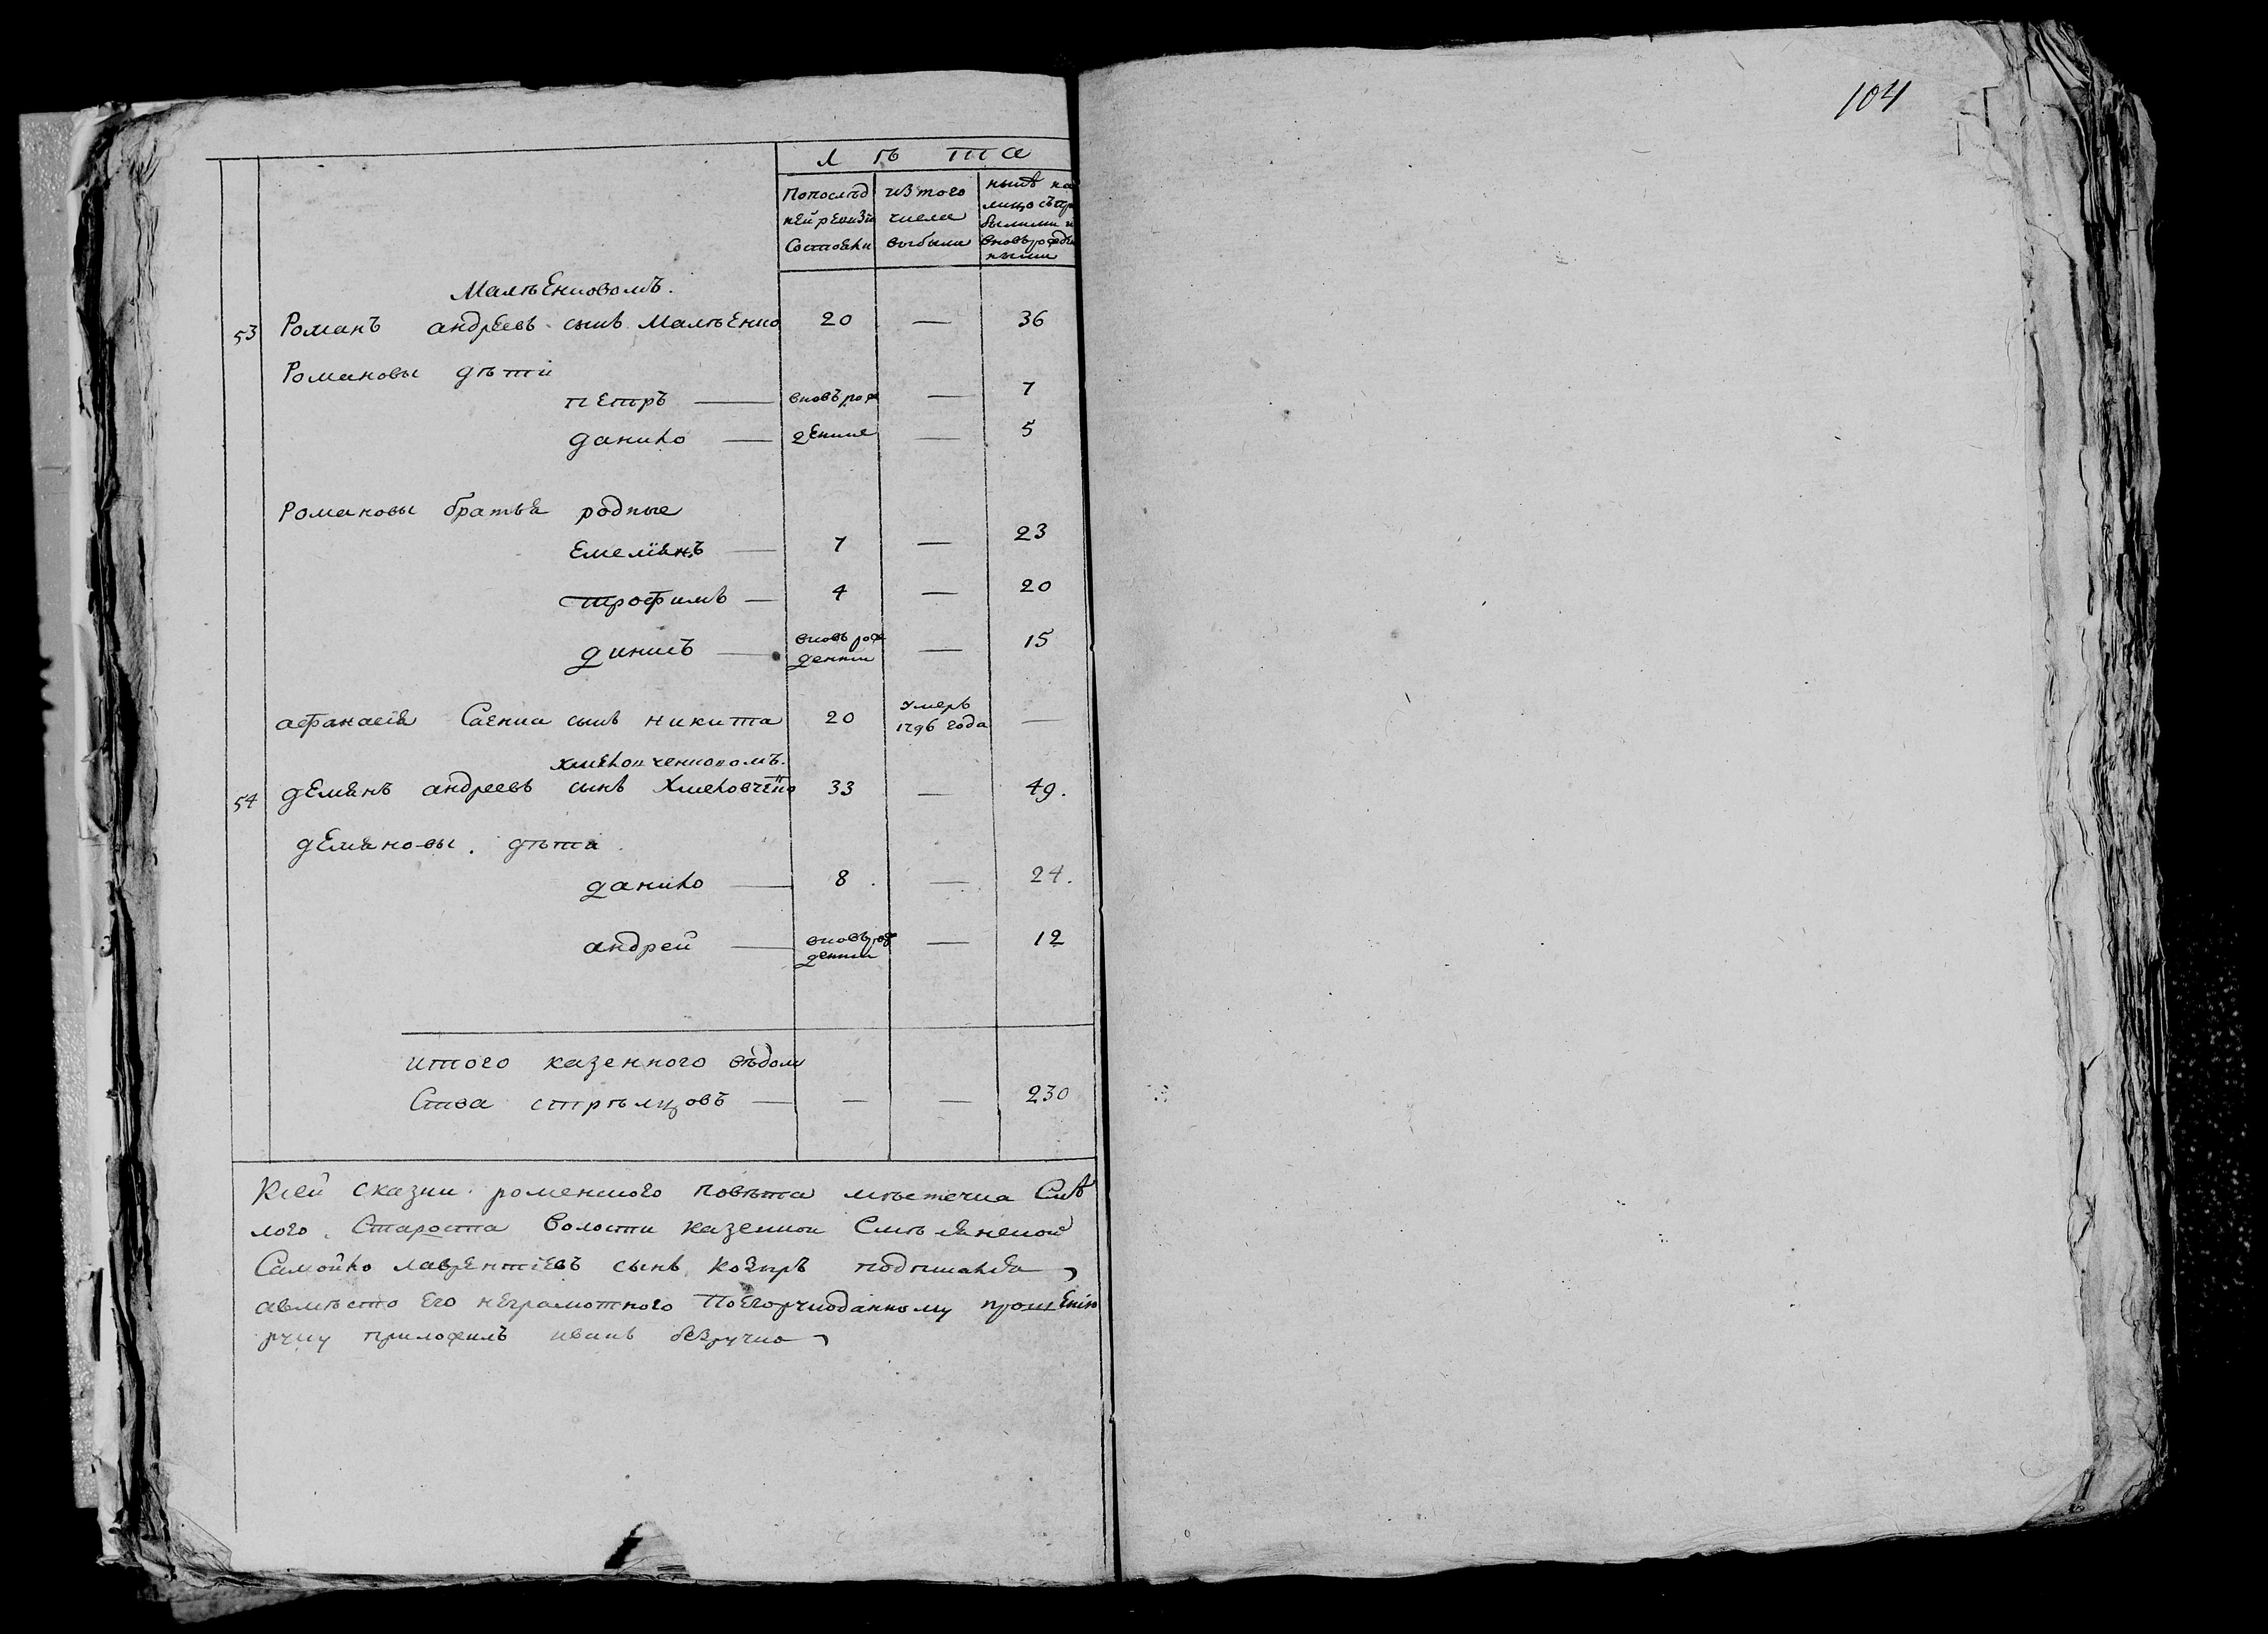 104
Л ѣ та
Попослѣд изтого нынѣ на
ней ревизіи числа лицо съпри
Состояли выбыли былыми и
вновь рожден
ными
Малѣенковомъ.
53 Романъ андреевъ сынъ Малѣенко 20 — 36
Романовы дѣти
петръ — вновърож — 7
данило — денные — 5
Романовы братья родные
Емелїянъ — 7 — 23
трофимъ — 4 — 20
динисъ — вновърож денны — 15
афанасія Саенка сынъ никита 20 умеръ 1796 года —
Хмеловченковомъ.
54 демянъ андреевъ сынъ Хмеловченко 33 — 49.
демяновы. дѣти
данило — 8. — 24.
андрей — вновърож денны — 12
итого казенного вѣдом
Ства стрѣлцовъ — — — 230
Ксей сказки роменского повѣта мѣстечка Смѣ
лого. Староста Волости казенной Смѣлянской
Самойло лаврентїевъ сынъ козиръ подписался
авмѣсто Его неграмотного ПоЕгорчноданному прошенїю
руку приложилъ иванъ безручко